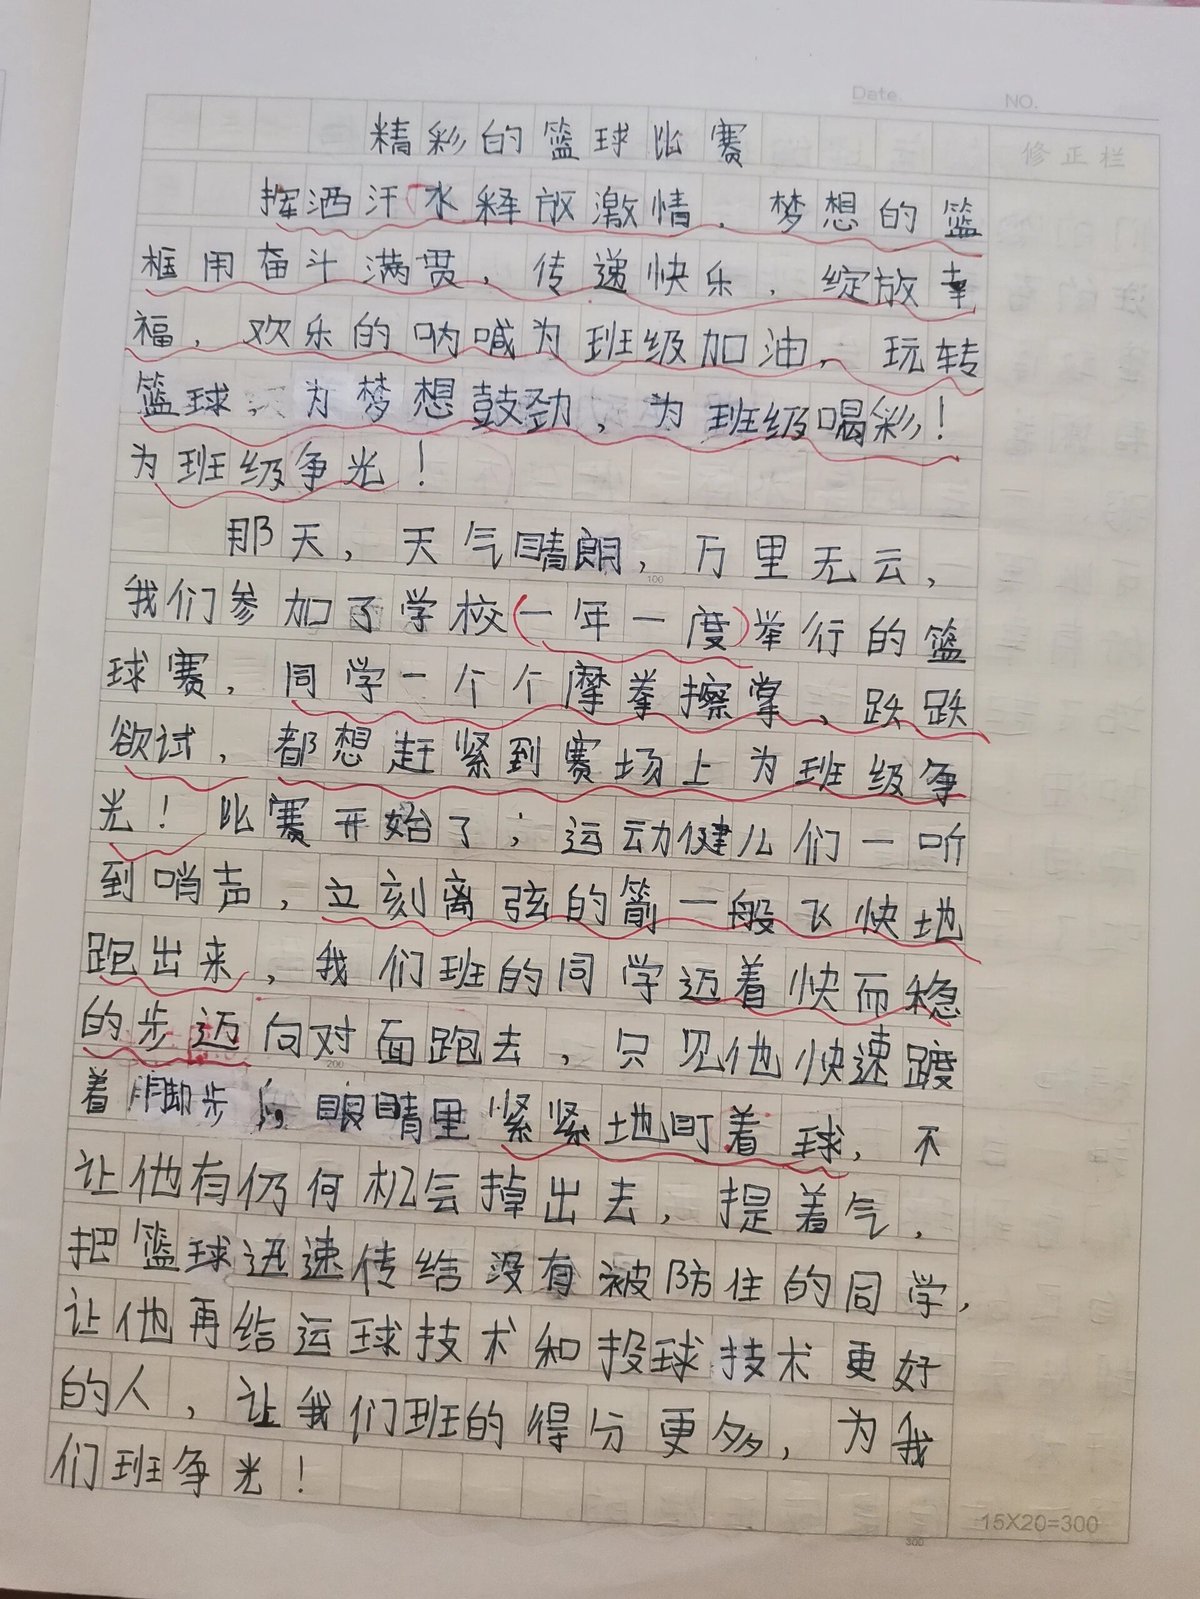 Date. NO.
修正栏
精彩的篮球比赛
挥洒汗水释放激情，梦想的篮
框用奋斗满贯，传递快乐，绽放幸
福，欢乐的呐喊为班级加油，玩转
篮球 为梦想鼓劲，为班级喝彩！
为班级争光！
那天，天气晴朗，万里无云，
100
我们参加了学校(一年一度)举行的篮
球赛，同学一个个摩拳擦掌、跃跃
欲试，都想赶紧到赛场上为班级争
光！比赛开始了；运动健儿们一听
到哨声，立刻离弦的箭一般飞快地
跑出来，我们班的同学迈着快而稳
的步迈向对面跑去，只见他快速踱
200
着脚步，眼睛里紧紧地盯着球，不
让他有仍何机会掉出去，提着气，
把篮球迅速传给没有被防住的同学，
让他再给运球技术和投球技术更好
的人，让我们班的得分更多，为我
们班争光！
15X20=300
300